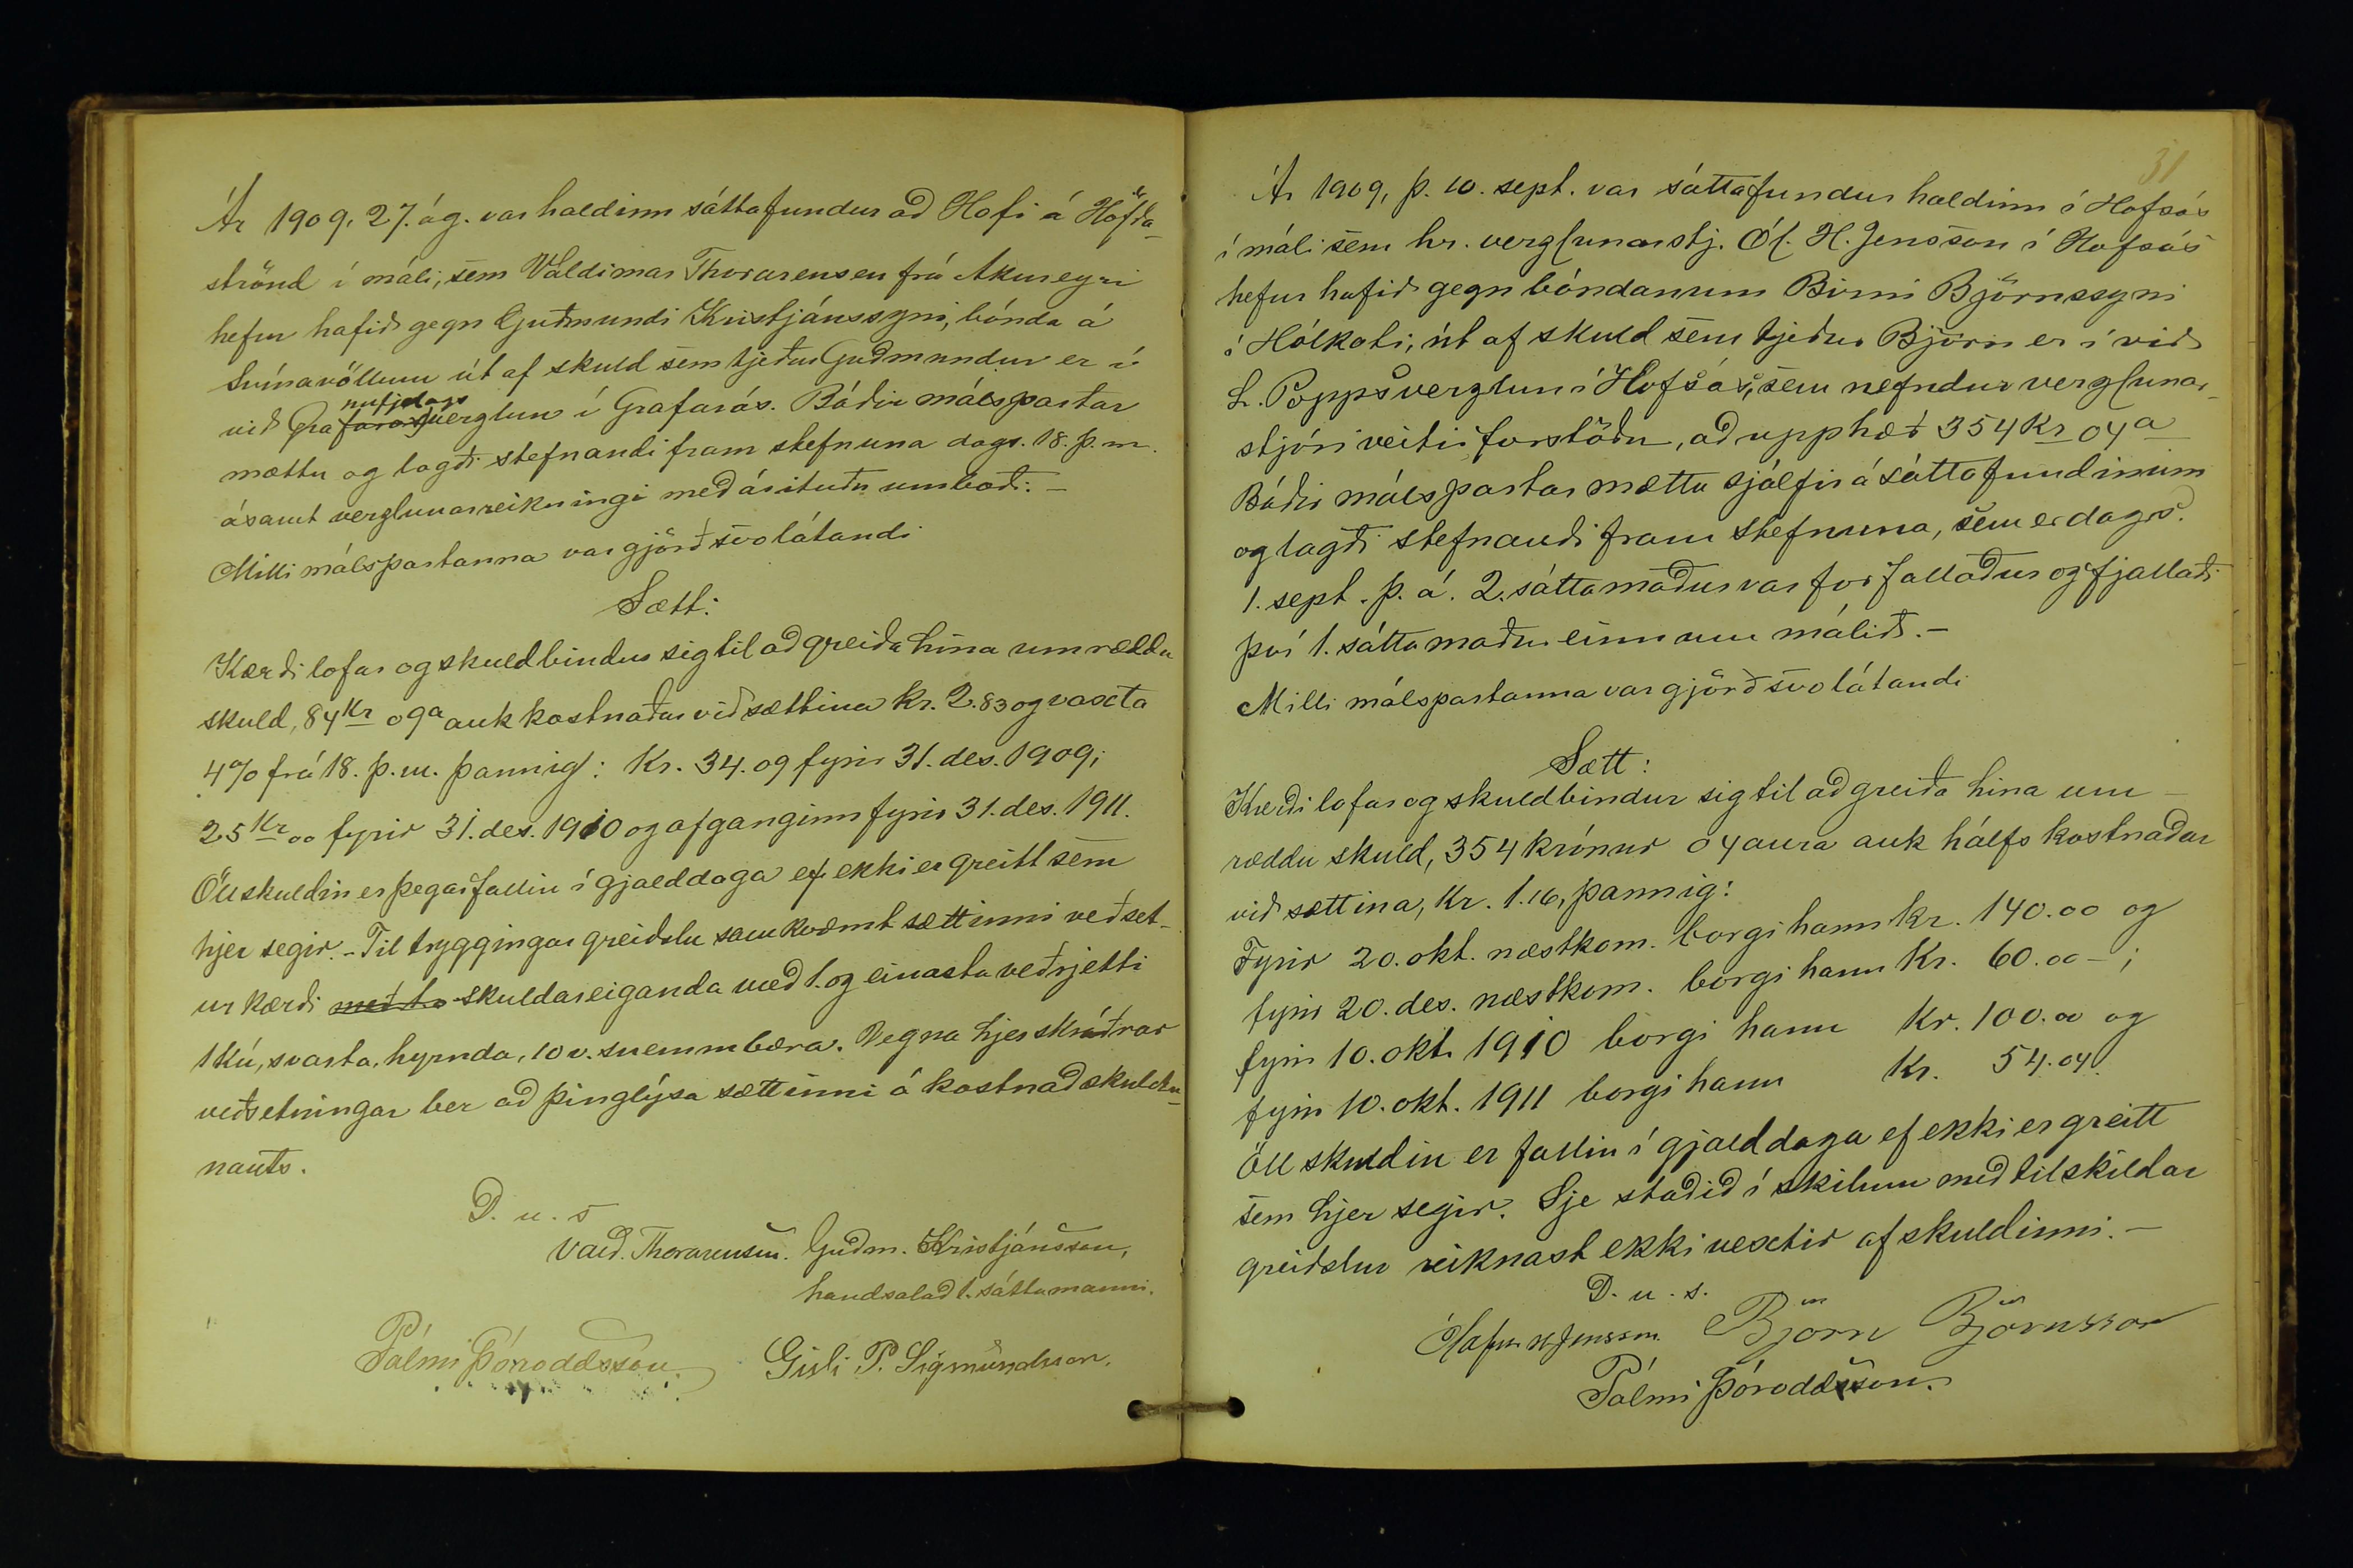 Ár 1909, 27. ág. var haldinn sáttafundur að Hofi á Höfða-
strönd í máli, sem Valdimar Thorarensen frá Akureyri
hefur hafið gegn Guðmundi Kristjánssyni, bónda á
Svínavöllum út af skuld sem tjeður Guðmundur er í
við Grafarósverzlun í Grafarós. Báðir málspartar
mættu og lagði stefnandi fram stefnuna dags. 18. þ. m.
ásamt verzlunarreikningi með árituðu umboði. -
Milli málspartanna var gjörð svolátandi
Sætt:
Kærði lofar og skuldbindur sig til að greiða hina umræddu
skuld, 84 Kr 09 a auk kostnaðar við sættina kr. 2.83 og vaxta
4% frá 18. þ. m. þannig: Kr. 34.09 fyrir 31. des. 1909;
25 Kr 00 fyrir 31. des. 1910 og afganginn fyrir 31. des. 1911.
Öll skuldin er þegar fallin í gjalddaga ef ekki er greitt sem
hjer segir. - Til tryggingar greiðslu samkvæmt sættinni veðset-
ur kærði skuldareiganda með 1. og einasta veðrjetti
1 kú, svarta, hyrnda, 10 v. snemmbæra. Vegna hjer skráðrar
veðsetningar ber að þinglýsa sættinni á kostnað skuldu-
nauts.
D. u. s
Vald. Thorarensen. Guðm. Kristjánsson,
handsalað 1. sáttamanni.
Pálmi Þóroddsson. Gísli P. Sigmundsson.
31
Ár 1909, þ. 10. sept. var sáttafundur haldinn í Hofsós
í máli sem hr. verzlunarstj. Ól. H. Jensson í Hofsós
hefur hafið gegn bóndanum Birni Björnssyni
í Hólkoti, út af skuld sem tjeður Björn er í við
L. Poppsverzlun í Hofsós, sem nefndur verzlunar-
stjóri veitir forstöðu, að upphæð 354 Kr 04 a
Báðir málspartar mættu sjálfir á sáttafundinum
og lagði stefnandi fram stefnuna, sem er dags.
1. sept. þ. á. 2. sáttamaður var forfallaður og fjallaði
því 1. sáttamaður einn um málið. -
Milli málspartanna var gjörð svolátandi
Sætt:
Kærði lofar og skuldbindur sig til að greiða hina um-
ræddu skuld, 354 krónur 04 aura auk hálfs kostnaðar
við sættina, Kr. 1.16, þannig:
Fyrir 20. okt. næstkom. borgi hann kr. 140.00 og
fyrir 20. des. næstkom. borgi hann Kr. 60.00 - ;
fyrir 10. okt. 1910 borgi hann Kr. 100.00 og
fyrir 10. okt. 1911 borgi hann Kr. 54.04.
Öll skuldin er fallin í gjalddaga ef ekki er greitt
sem hjer segir. Sje staðið í skilum með tilskildar
greiðslur reiknast ekki vextir af skuldinni. -
D. u. s.
Ólafur H Jensson Björn Björnsson
Pálmi Þóroddsson.